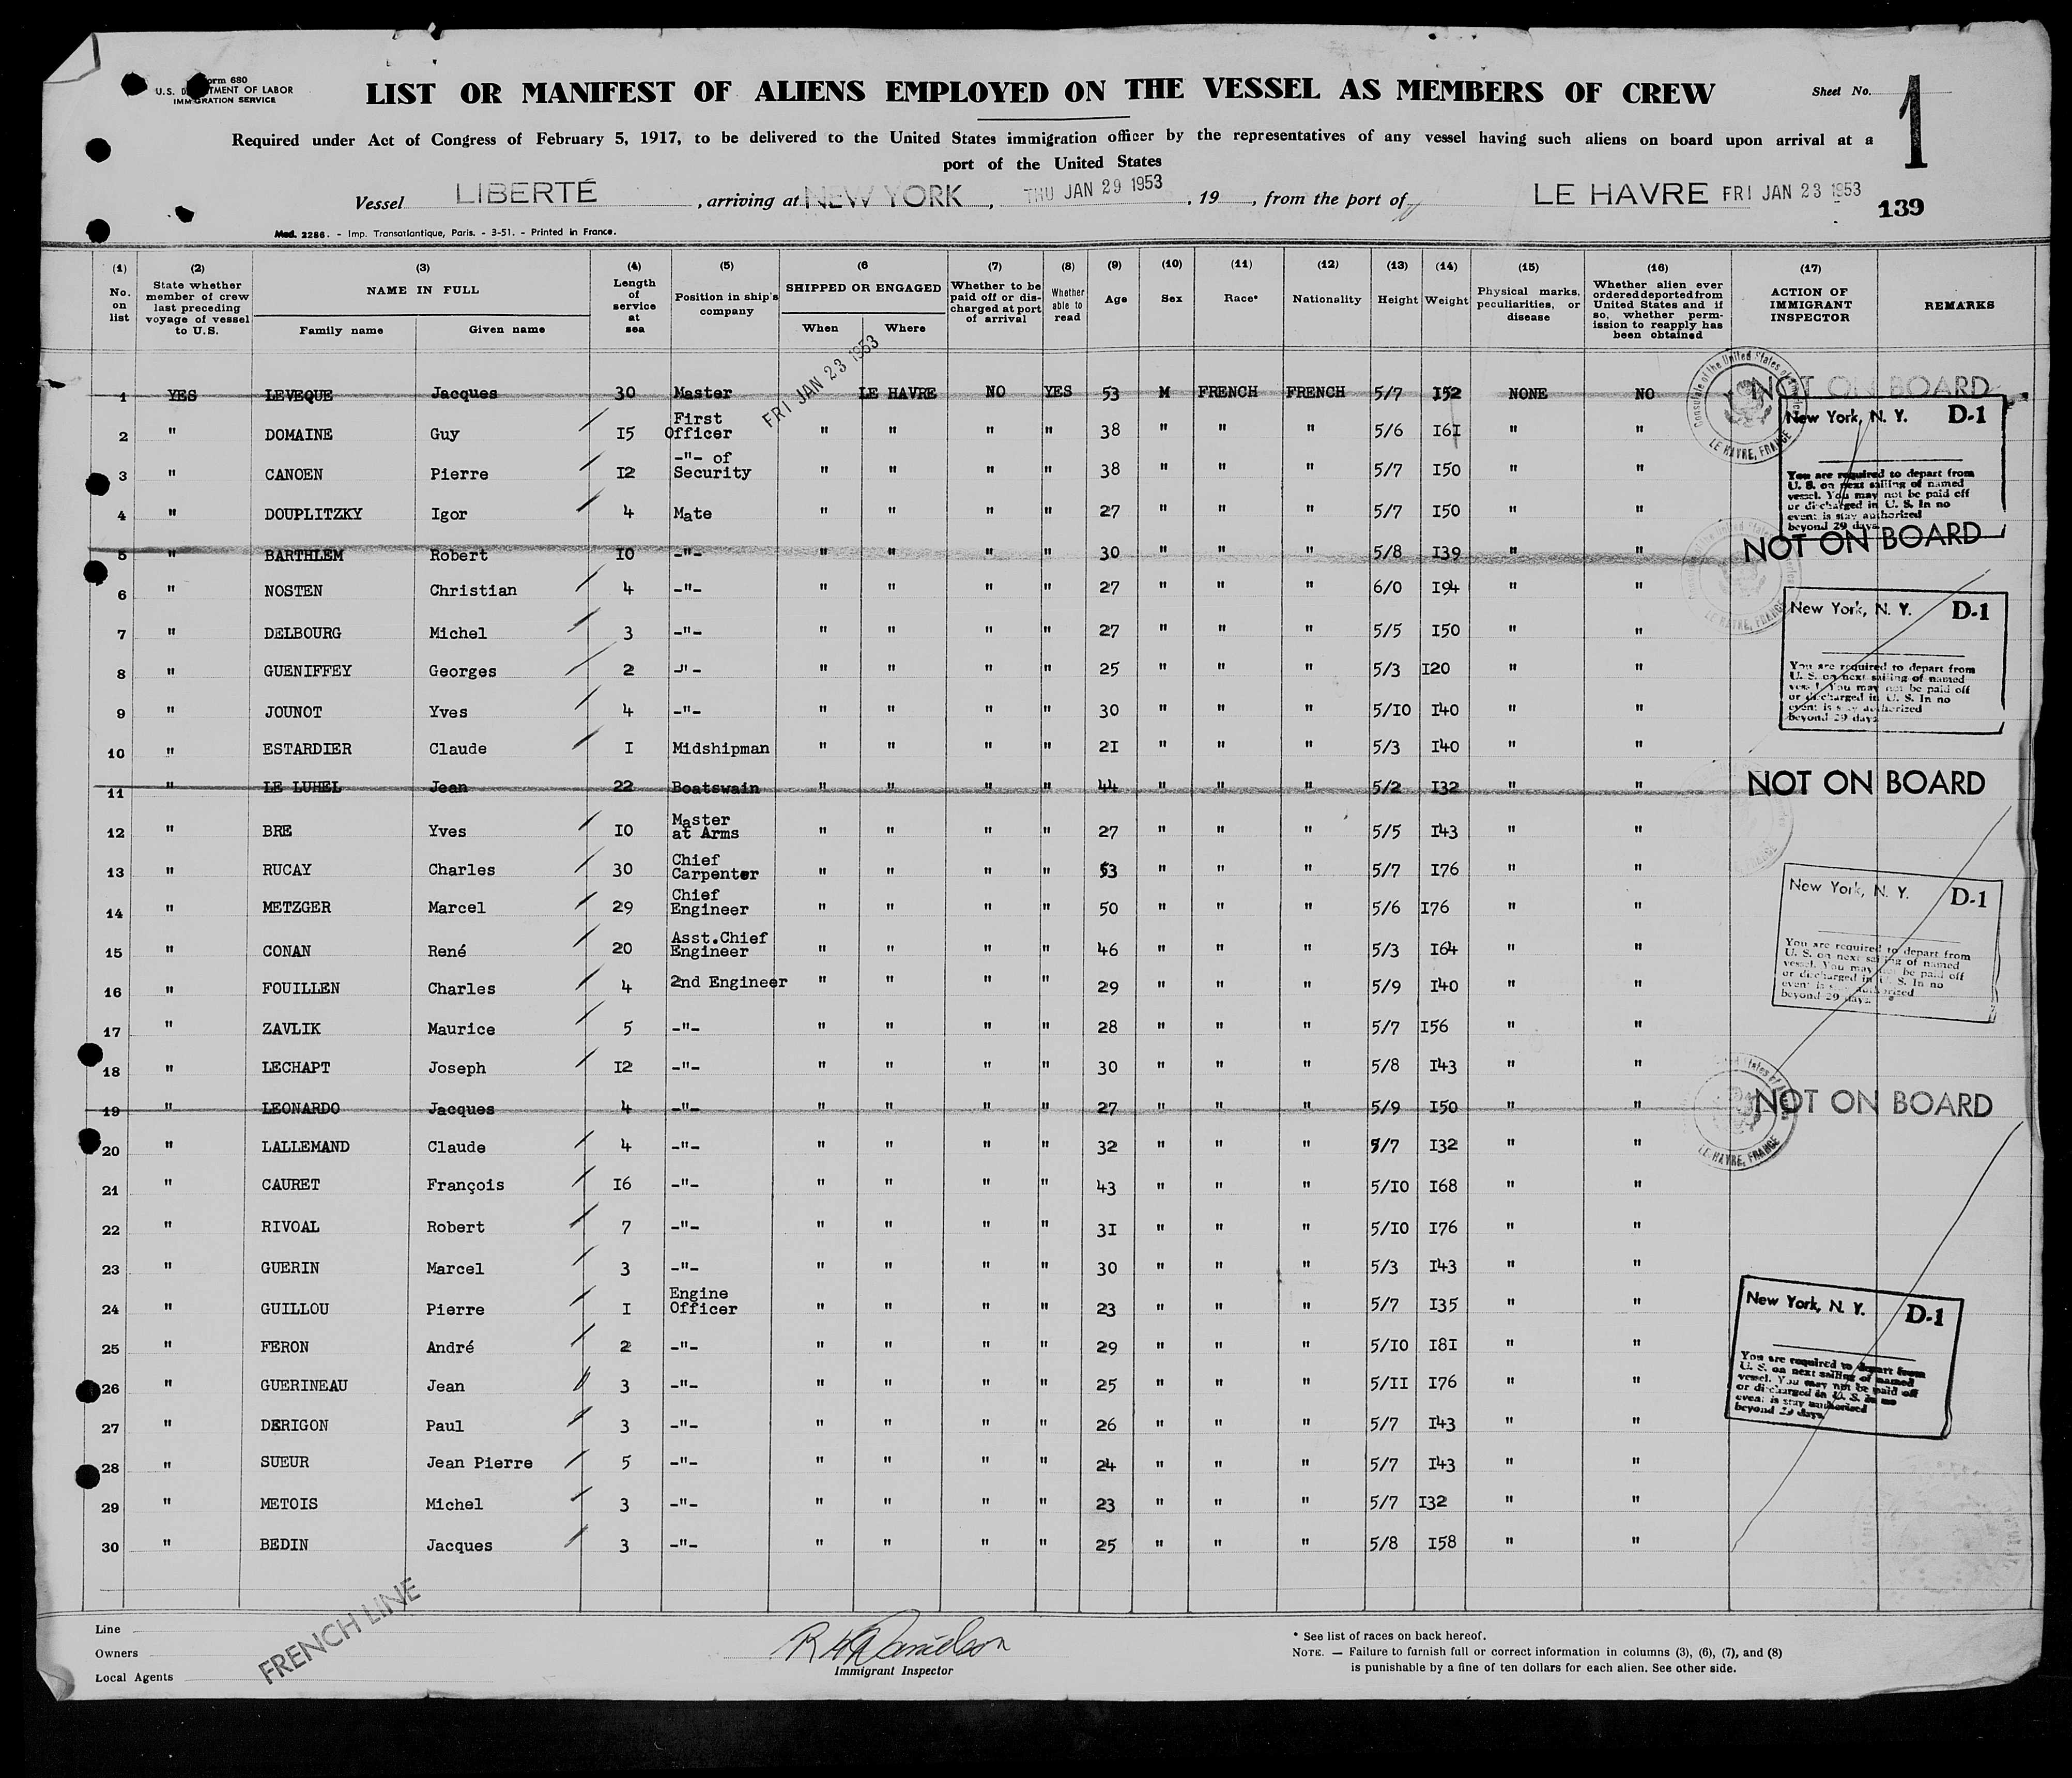 Form 680
U.S. DEPARTMENT OF LABOR
IMMIGRATION SERVICE
LIST OR MANIFEST OF ALIENS EMPLOYED ON THE VESSEL AS MEMBERS OF CREW
Sheet No. 1
Required under Act of Congress of February 5, 1917, to be delivered to the United States immigration officer by the representatives of any vessel having such aliens on board upon arrival at a
port of the United States
Vessel LIBERTÉ, arriving at NEW YORK, THU JAN 29 1953, 19 , from the port of LE HAVRE FRI JAN 23 1953
139
Mod. 2286. - Imp. Transatlantique, Paris. - 3-51. - Printed in France.
(1) No. on list
(2) State whether member of crew last preceding voyage of vessel to U.S.
(3) NAME IN FULL Family name Given name
(4) Length of service at sea
(5) Position in ship's company
(6 SHIPPED OR ENGAGED When Where
(7) Whether to be paid off or discharged at port of arrival
(8) Whether able to read
(9) Age
(10) Sex
(11) Race*
(12) Nationality
(13) Height
(14) Weight
(15) Physical marks, peculiarities, or disease
(16) Whether alien ever ordered deported from United States and if so, whether permission to reapply has been obtained
(17) ACTION OF IMMIGRANT INSPECTOR
REMARKS
FRI JAN 23 1953
1 YES LEVEQUE Jacques 30 Master LE HAVRE NO YES 53 M FRENCH FRENCH 5/7 152 NONE NO NOT ON BOARD
2 " DOMAINE Guy 15 First Officer " " " " 38 " " " 5/6 161 " "
3 " CANOEN Pierre 12 -"- of Security " " " " 38 " " " 5/7 150 " "
4 " DOUPLITZKY Igor 4 Mate " " " " 27 " " " 5/7 150 " "
5 " BARTHLEM Robert 10 -"- " " " " 30 " " " 5/8 139 " " NOT ON BOARD
6 " NOSTEN Christian 4 -"- " " " " 27 " " " 6/0 194 " "
7 " DELBOURG Michel 3 -"- " " " " 27 " " " 5/5 150 " "
8 " GUENIFFEY Georges 2 -"- " " " " 25 " " " 5/3 120 " "
9 " JOUNOT Yves 4 -"- " " " " 30 " " " 5/10 140 " "
10 " ESTARDIER Claude 1 Midshipman " " " " 21 " " " 5/3 140 " "
11 " LE LUHEL Jean 22 Boatswain " " " " 44 " " " 5/2 132 " " NOT ON BOARD
12 " BRE Yves 10 Master at Arms " " " " 27 " " " 5/5 143 " "
13 " RUCAY Charles 30 Chief Carpenter " " " " 53 " " " 5/7 176 " "
14 " METZGER Marcel 29 Chief Engineer " " " " 50 " " " 5/6 176 " "
15 " CONAN René 20 Asst.Chief Engineer " " " " 46 " " " 5/3 164 " "
16 " FOUILLEN Charles 4 2nd Engineer " " " " 29 " " " 5/9 140 " "
17 " ZAVLIK Maurice 5 -"- " " " " 28 " " " 5/7 156 " "
18 " LECHAPT Joseph 12 -"- " " " " 30 " " " 5/8 143 " "
19 " LEONARDO Jacques 4 -"- " " " " 27 " " " 5/9 150 " " NOT ON BOARD
20 " LALLEMAND Claude 4 -"- " " " " 32 " " " 5/7 132 " "
21 " CAURET François 16 -"- " " " " 43 " " " 5/10 168 " "
22 " RIVOAL Robert 7 -"- " " " " 31 " " " 5/10 176 " "
23 " GUERIN Marcel 3 -"- " " " " 30 " " " 5/3 143 " "
24 " GUILLOU Pierre 1 Engine Officer " " " " 23 " " " 5/7 135 " "
25 " FERON André 2 -"- " " " " 29 " " " 5/10 181 " "
26 " GUERINEAU Jean 3 -"- " " " " 25 " " " 5/11 176 " "
27 " DERIGON Paul 3 -"- " " " " 26 " " " 5/7 143 " "
28 " SUEUR Jean Pierre 5 -"- " " " " 24 " " " 5/7 143 " "
29 " METOIS Michel 3 -"- " " " " 23 " " " 5/7 132 " "
30 " BEDIN Jacques 3 -"- " " " " 25 " " " 5/8 158 " "
Consulate of the United States of America
LE HAVRE, FRANCE
New York, N. Y. D-1
You are required to depart from
U. S. on next sailing of named
vessel. You may not be paid off
or discharged in U. S. In no
event is stay authorized
beyond 29 days
LE HAVRE, FRANCE
New York, N. Y. D-1
You are required to depart from
U. S. on next sailing of named
vessel. You may not be paid off
or discharged in U. S. In no
event is stay authorized
beyond 29 days
New York, N. Y. D-1
You are required to depart from
U. S. on next sailing of named
vessel. You may not be paid off
or discharged in U. S. In no
event is stay authorized
beyond 29 days.
LE HAVRE, FRANCE
New York, N. Y. D-1
You are required to depart from
U. S. on next sailing of named
vessel. You may not be paid off
or discharged in U. S. In no
event is stay authorized
beyond 29 days
Line
Owners
Local Agents
FRENCH LINE
Immigrant Inspector
* See list of races on back hereof.
NOTE. — Failure to furnish full or correct information in columns (3), (6), (7), and (8)
is punishable by a fine of ten dollars for each alien. See other side.